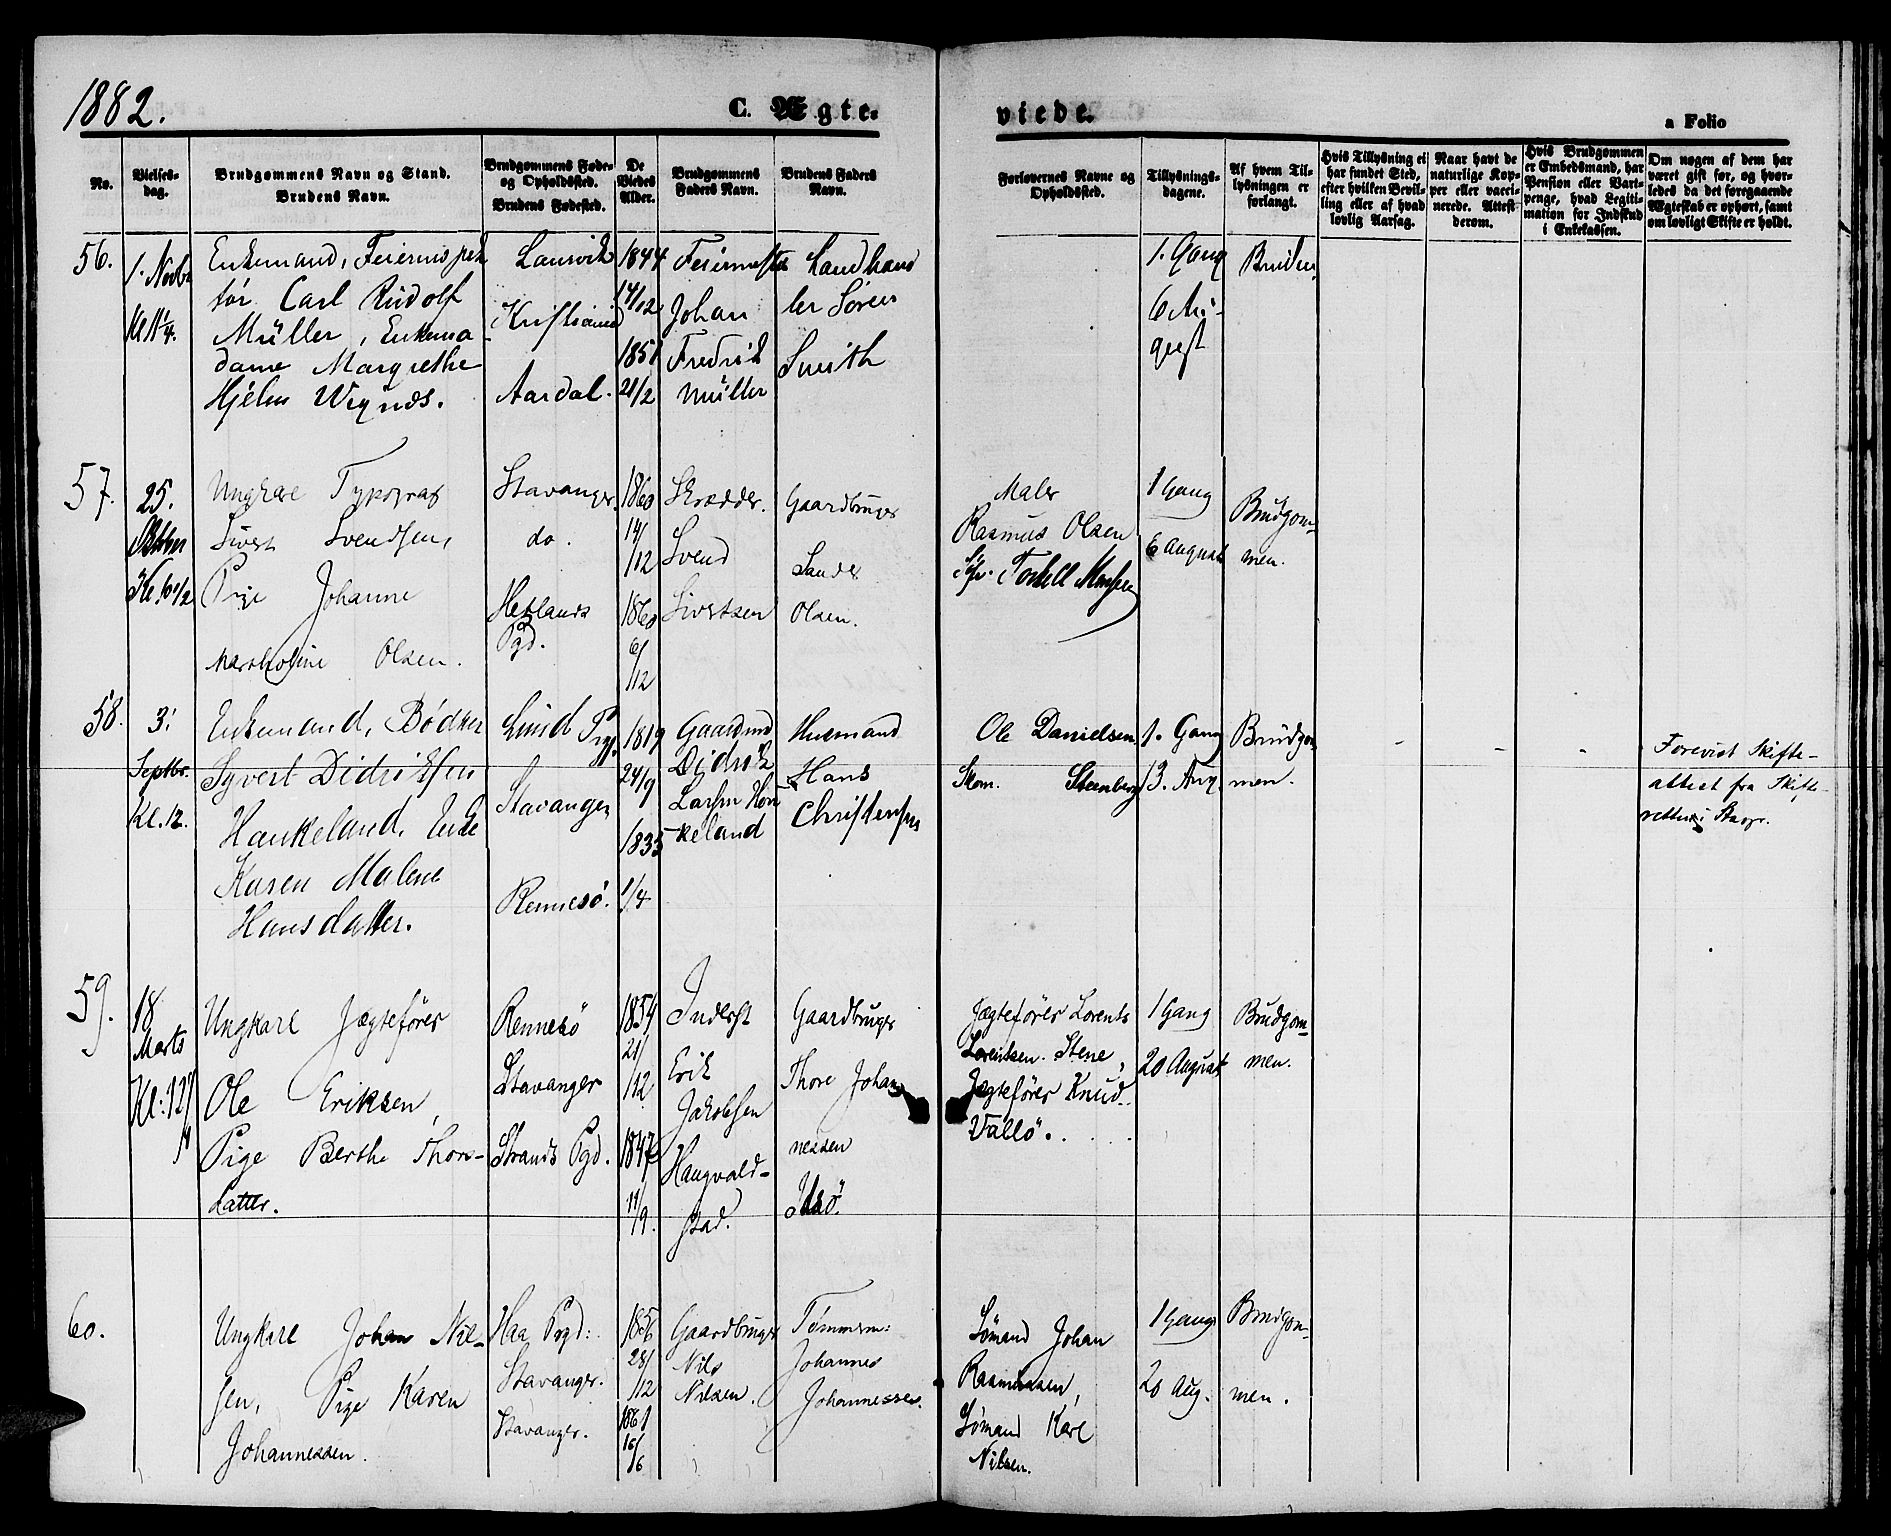 1882.
C. Ægte-
viede.
a Folio
No.
Vielses-
dag.
Brudgommens Navn og Stand.
Brudens Navn.
Brudgommens Føde-
og Opholdssted.
Brudens Fødested.
De
Viedes
Alder.
Brudgommens
Faders Navn.
Brudens Faders
Navn.
Forlovernes Navne og
Opholdssted.
Tillysnings-
dagene.
Af hvem Til-
lysningen er
forlangt.
Hvis Tillysning ei
har fundet Sted,
efter hvilken Bevil-
ling eller af hvad
lovlig Aarsag.
Naar havt de
naturlige Kop-
per eller vacci-
nerede. Attest
derom.
Hvis Brudgommen
er Embedsmand, har
Pension eller Vart-
penge, hvad Legiti-
mation for Indskud
i Enkekassen.
Om nogen af dem har
været gift før, og hvor-
ledes da det foregaaende
Ægteskab er ophørt, samt
om lovligt Skifte er holdt.
56.
1. Novbr
Kl. 11 1/4.
Enkemand, Feierinspek
tør Carl Rudolf
Müller, Enkema
dame Margrethe
Hjelm Wignæs.
Laurvik
Kristiansand
Aardal.
1844
14/12
1851
21/2
Feiermester
Johan
Fredrik
Müller
Landhand
ler Søren
Smith
1. Gang
6 Au-
gust
Bruden
57.
25.
Oktober
Kl. 10 1/2
Ungkarl Typograf
Sivert Svendsen,
Pige Johanne
Marsholine Olsen.
Stavanger
do.
Hetlands
Pgd.
1860
14/
/12
1860
6/
/12
Skrædder.
Svend
Sivertsen
Gaardbruger
Sander
Olsen.
Maler
Rasmus Olsen
Torkell Monsen
1 Gang
6 August
Brudgom-
men.
58.
3.
Septbr.
Kl. 12.
Enkemand, Bødker
Syvert Didriksen
Haukeland, Enke
Karen Malene
Hansdatter.
Lund Prgj.
Stavanger
Rennesö.
1819
24/9
1835
1/4
Gaardmd
Didrik
Larsen Hau
keland
Husmand
Hans
Christensen
Ole Danielsen
Skom. Steenberg
1. Gang
13. Aug.
Brudgom
men.
Forevist Skifte-
attest fra Skifte-
retten i Stavgr.
59.
18
Marts
Kl: 12 1/4
Ungkarl Jægtefører
Ole Eriksen,
Pige Berthe Thors-
datter.
Rennesö
Stavanger
Strands Pgd.
1854
21/
/12
1847
11/
/9.
Inderst
Erik
Jakobsen
Haugvald-
stad.
Gaardbruger
Thore Johan
nessen
Idsö.
Jægtefører Lorents
Lorentsen Stene,
Jægtefører Knud
Vallö.
1 Gang
20 August
Brudgom-
men.
60.
Ungkarl Johan Nil-
sen, Pige Karen
Johannessen.
Haa Prgd:
Stavanger.
Stavanger.
1856
28/
/12
1861
16/
/6
Gaardbruger
Nils
Nilsen.
Tømmerm:
Johannes
Johannessen.
Sømand Johan
Rasmussen,
Sømand Karl
Nilsen.
1 Gang
20 Aug.
Brudgom-
men.